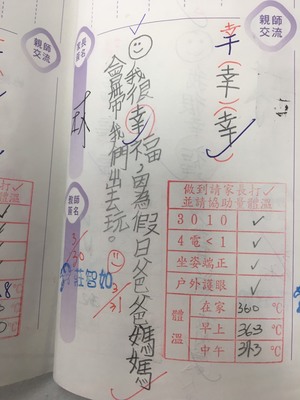 親師交流
幸(幸)(幸)
我很幸福,因為假日爸爸媽媽
會帶我們出去玩。
家長簽名
教師簽名
3/30
莊智如
3/31
做到請家長打✓
並請協助量體溫
3010 ✓
4電<1 ✓
坐姿端正 ✓
户外護眼 ✓
體溫
在家 360 ℃
早上 363 ℃
中午 ℃
親師交流
℃
℃
℃